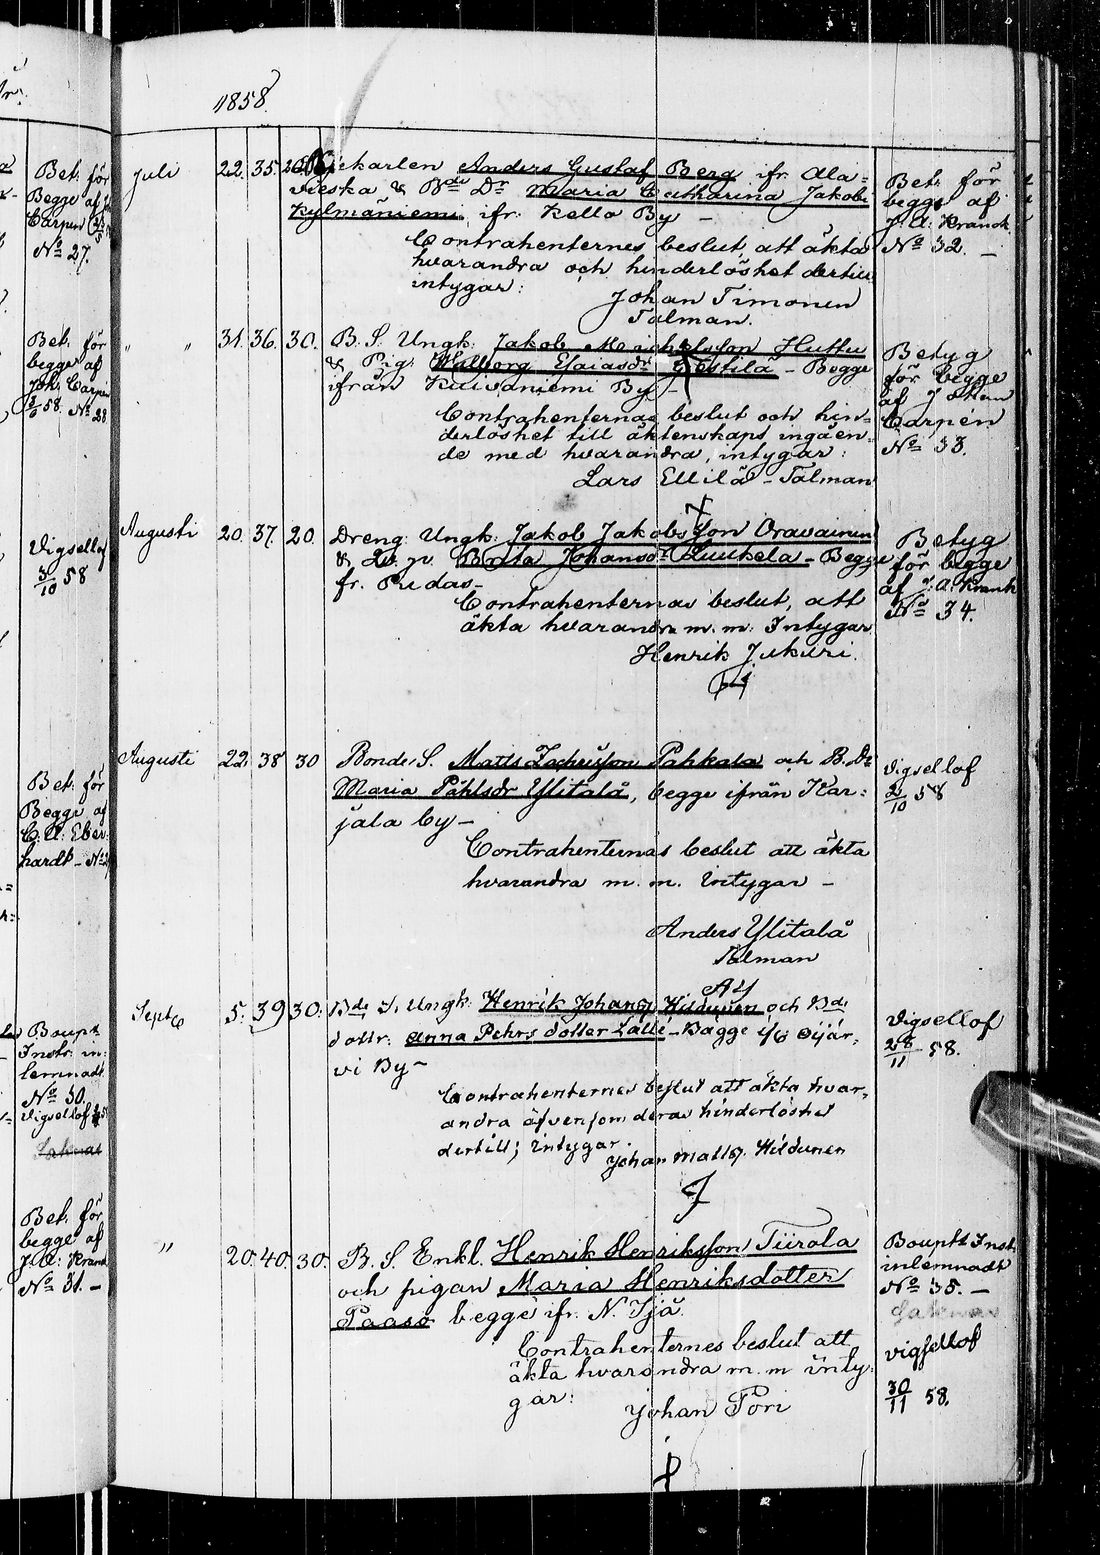 1858.
Bet. för
Begge af
Carpen
No 27.
Juli 22. 35. 20 karlen Anders Gustaf Berg ifr. Ala-
vieska & Bde Dr Maria Catharina Jakobs
Kylmäniemi ifr. Kello By –
Contrahenternes beslut, att äkta
hvarandra och hinderlöshet dertill
intygar:
Johan Timonen
Talman.
Bet. för
begge af
J. A. Kranck
No 32. –
Bet. för
begge af
Joh. Carpen
58. No 28
" " 31. 36. 30. B. S. Ungk. Jakob Huttu
& Pig. Walborg Esaiasdr – Begge
ifrån Kuivaniemi By –
Contrahenternas beslut och hin-
derlöshet till äktenskaps ingåen-
de med hvarandra, intygar:
Lars Ellilä – Talman
Betyg
för begge
af Johan
Carpén
No 33.
Vigsellof
3/10 58
Augusti 20. 37. 20. Dreng. Ungk. Jakob Jakobsson Oravainen
& Brita Johansdr Luukela – Begge
fr. Pudas –
Contrahenternas beslut, att
äkta hvarandra m. m. Intygar
Henrik Jukuri.
Betyg
för begge
af J. A. Krank
No 34.
Bet. för
Begge af
C. A. Eber-
hardt – No
Augusti 22. 38 30 Bonde S. Matts Zachrisson Pahkala och B. Dr
Maria Påhlsdr Ylitalå, begge ifrån Kar-
jala by –
Contrahenternas beslut att äkta
hvarandra m. m. intygar –
Anders Ylitalå
Talman
AY
Vigsellof
2/10 58
Boupt
Instr. in-
lemnadt
No 30.
Vigsellof
Sept 5. 39 30. Bde S. Ungk. Henrik Johans. Hildunen och Bde
dottr. Anna Pehrs dotter Lalli – Bagge i/o Oijär-
vi By –
Contrahenternes beslut att äkta hvar-
andra äfvensom deras hinderlöshet
dertill; intygar.
Johan Matts. Hildunen
Vigsellof
28/11 58.
Bet. för
begge af
J. A. Krank
No 31. –
" 20. 40. 30. B. S. Enkl. Henrik Henriksson Tiirola
och pigan Maria Henriksdotter
Paaso begge ifr. N. Ijå.
Contrahenternes beslut att
äkta hvarandra m. m inty-
gar:
Johan Pori
Boupts Inst.
inlemnadt
No 35. –
vigsellof
30/11 58.